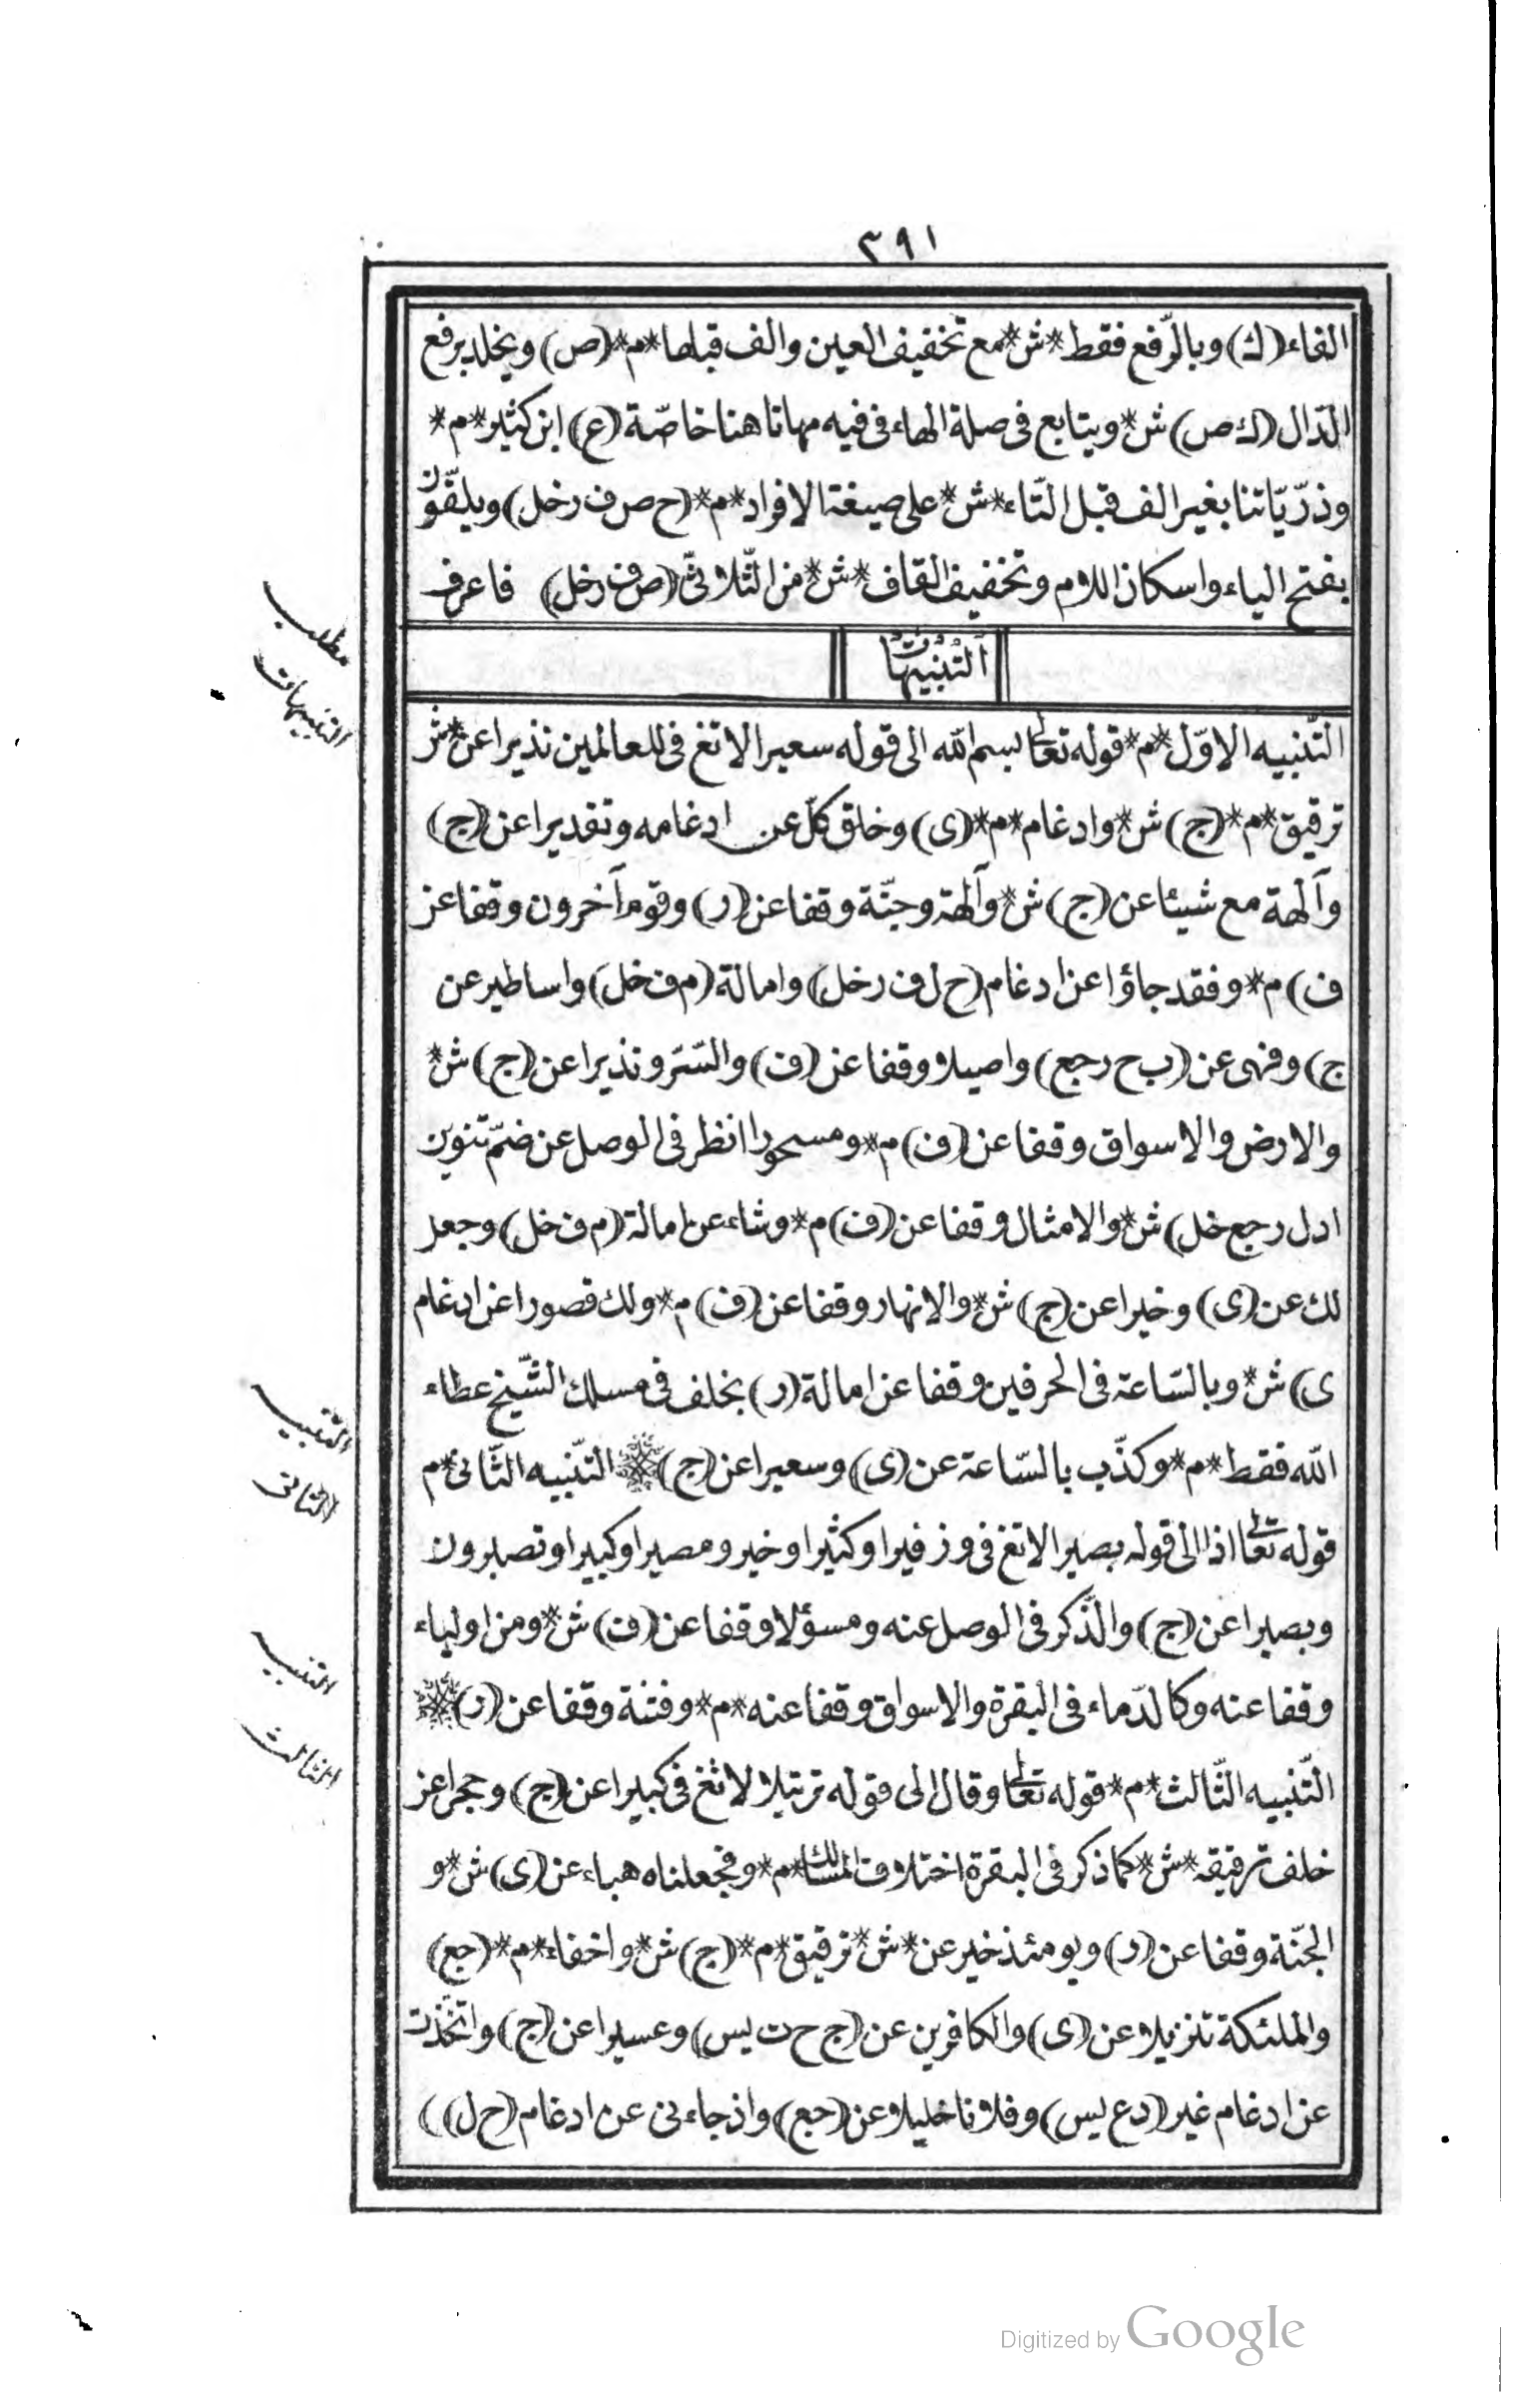 ٣٩١
الفاء (ك) وبالرّفع فقط * ش * مع تخفيف العين والف قبلها * م * (ص) ويخلد برفع
الدّال (ك ص) ش * ويتابع فى صلة الهاء فى فيه مهانا هنا خاصّة (ع) ابن كثير * م *
وذرّيّاتنا بغير الف قبل التّاء * ش * على صيغة الافراد * م * (ح ص ف ر خل) ويلقّون
بفتح الياء واسكان اللام وتخفيف القاف * ش * من الثّلاثىّ (ص ف ر خل) فاعرف
مطلب
التنبيهات
اَلتَّنْبِيهَاتُ
التّنبيه الاوّل * م * قوله تعالى بسم الله الى قوله سعيرا لا تغ فى للعالمين نذيرا عن * ش
ترقيق * م * (ج) ش * وادغام * م * (ى) وخلق كلّ عن ادغامه وتقديرا عن (ج)
وآلهة مع شيئا عن (ج) ش * وآلهة وجنّة وقفا عن (ر) وقوم آخرون وقفا عن
ف) م * وفقد جاؤا عن ادغام (ح ل ف ر خل) وامالة (م ف خل) واساطير عن
ج) وفهى عن (ب ح ر جع) واصيلا وقفا عن (ف) والسّرّ ونذيرا عن (ج) ش *
والارض والاسواق وقفا عن (ف) م * ومسحورا انظر فى الوصل عن ضمّ تنوين
ا د ل ر جع خل) ش * والامثال وقفا عن (ف) م * وشاء عن امالة (م ف خل) وجعل
لك عن (ى) وخيرا عن (ج) ش * والانهار وقفا عن (ف) م * ولك قصورا عن ادغام
ى) ش * وبالسّاعة فى الحرفين وقفا عن امالة (ر) بخلف فى مسلك الشّيخ عطاء
الله فقط * م * وكذّب بالسّاعة عن (ى) وسعيرا عن (ج) * التّنبيه الثّانى * م
التّنبيه
الثانى
قوله تعالى اذا الى قوله بصيرا لا تغ فى وزفيرا وكثيرا وخير ومصيرا وكبيرا وتصبرون
وبصيرا عن (ج) والذّكر فى الوصل عنه ومسؤلا وقفا عن (ف) ش * ومن اولياء
وقفا عنه وكالدّماء فى البقرة والاسواق وقفا عنه * م * وفتنة وقفا عن (ر) *
التنبيه
الثالث
التّنبيه الثّالث * م * قوله تعالى وقال الى قوله ترتيلا لا تغ فى كبيرا عن (ج) وحجرا عن
خلف ترقيقه * ش * كما ذكر فى البقرة اختلاف المسالك * م * وفجعلناه هباء عن (ى) ش * و
الجنّة وقفا عن (ر) ويومئذ خير عن * ش * ترقيق * م * (ج) ش * واخفاء * م * (جع)
والملئكة تنزيلا عن (ى) والكافرين عن (ج ح ت يس) وعسيرا عن (ج) واتّخذت
عن ادغام غير (د ع يس) وفلانا خليلا عن (جع) واذ جاءنى عن ادغام (ح ل))
Digitized by Google